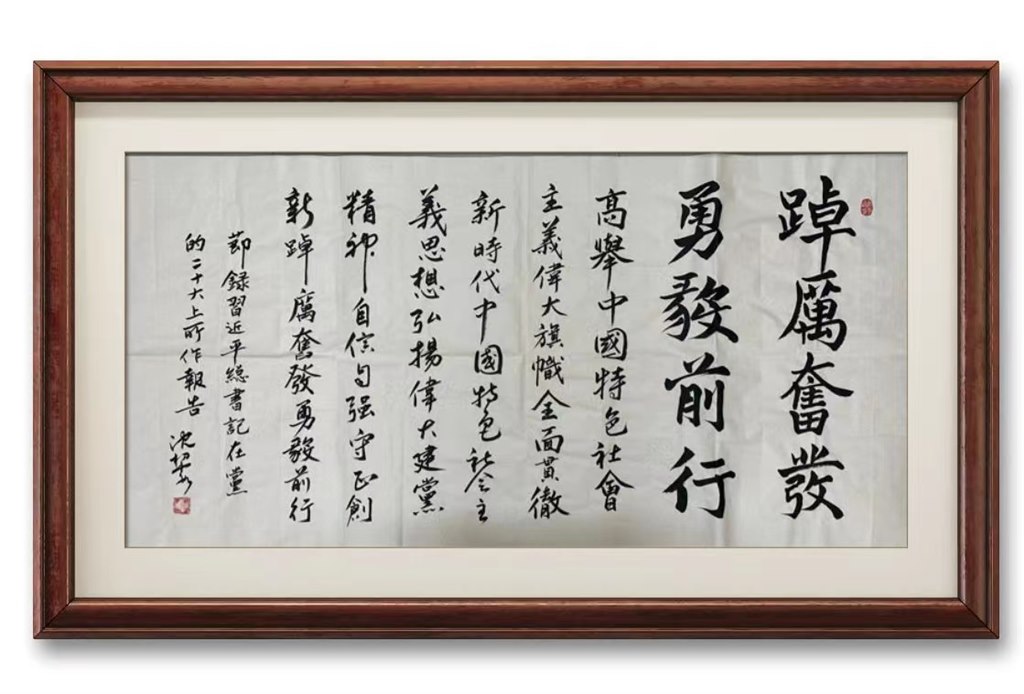 踔厲奮發
勇毅前行
高舉中國特色社會
主義偉大旗幟全面貫徹
新時代中國特色社会主
義思想弘揚偉大建黨
精神自信自强守正創
新踔厲奮發勇毅前行
節録習近平総書記在黨
的二十大上所作報告 沈